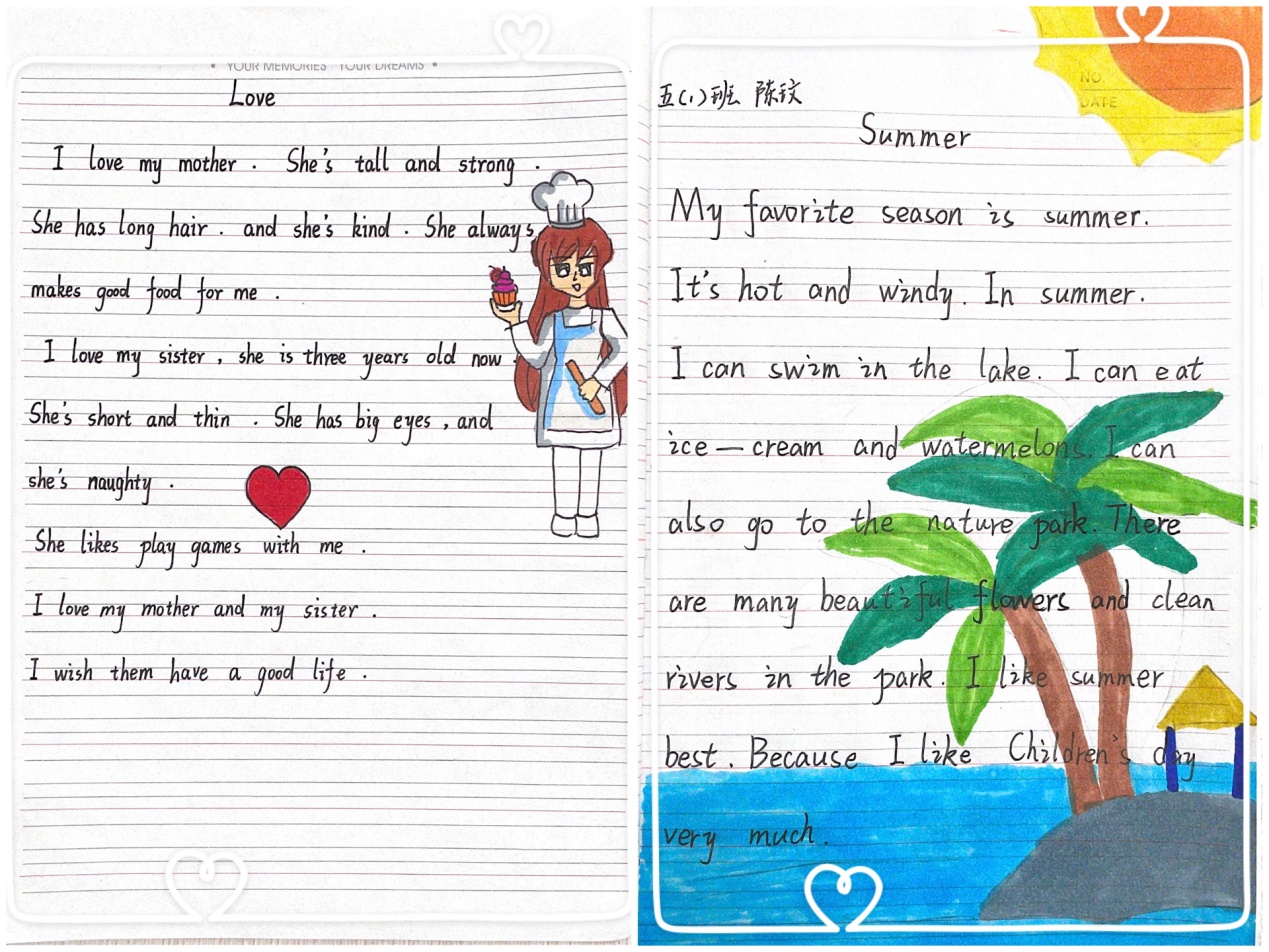 • YOUR MEMORIES YOUR DREAMS •
Love
I love my mother . She's tall and strong .
She has long hair . and she's kind . She always
makes good food for me .
I love my sister , she is three years old now
She's short and thin . She has big eyes , and
she's naughty .
She likes play games with me .
I love my mother and my sister .
I wish them have a good life .
NO.
DATE
五(1)班 陈玟
Summer
My favorite season is summer.
It's hot and windy. In summer.
I can swim in the lake. I can eat
ice — cream and watermelons. I can
also go to the nature park. There
are many beautiful flowers and clean
rivers in the park. I like summer
best. Because I like Children's day
very much.